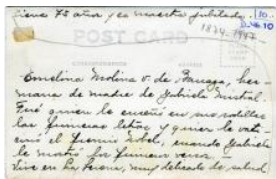 tiene 73 años y es maestra jubilada.
1874-1947
POST CARD
CORRESPONDENCE
ADDRESS
Emelina Molina v. de Barraza, her-
mana de madre de Gabriela Mistral.
Fué quien le enseñó en sus rodillas
las primeras letras y quien le
el premio Nobel, cuando Gabriela
le mostró los primeros versos.
Vive en La Serena, muy delicada de salud.